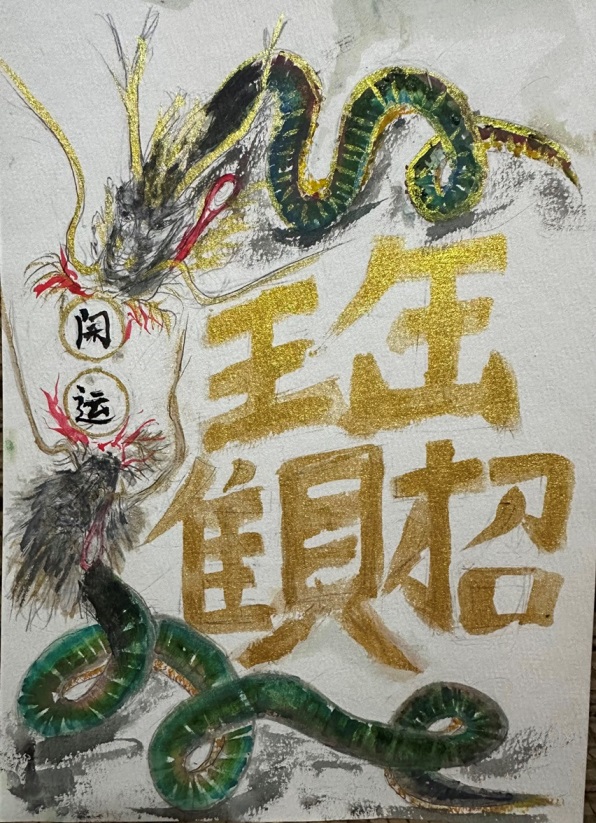 開
运
招財進寶